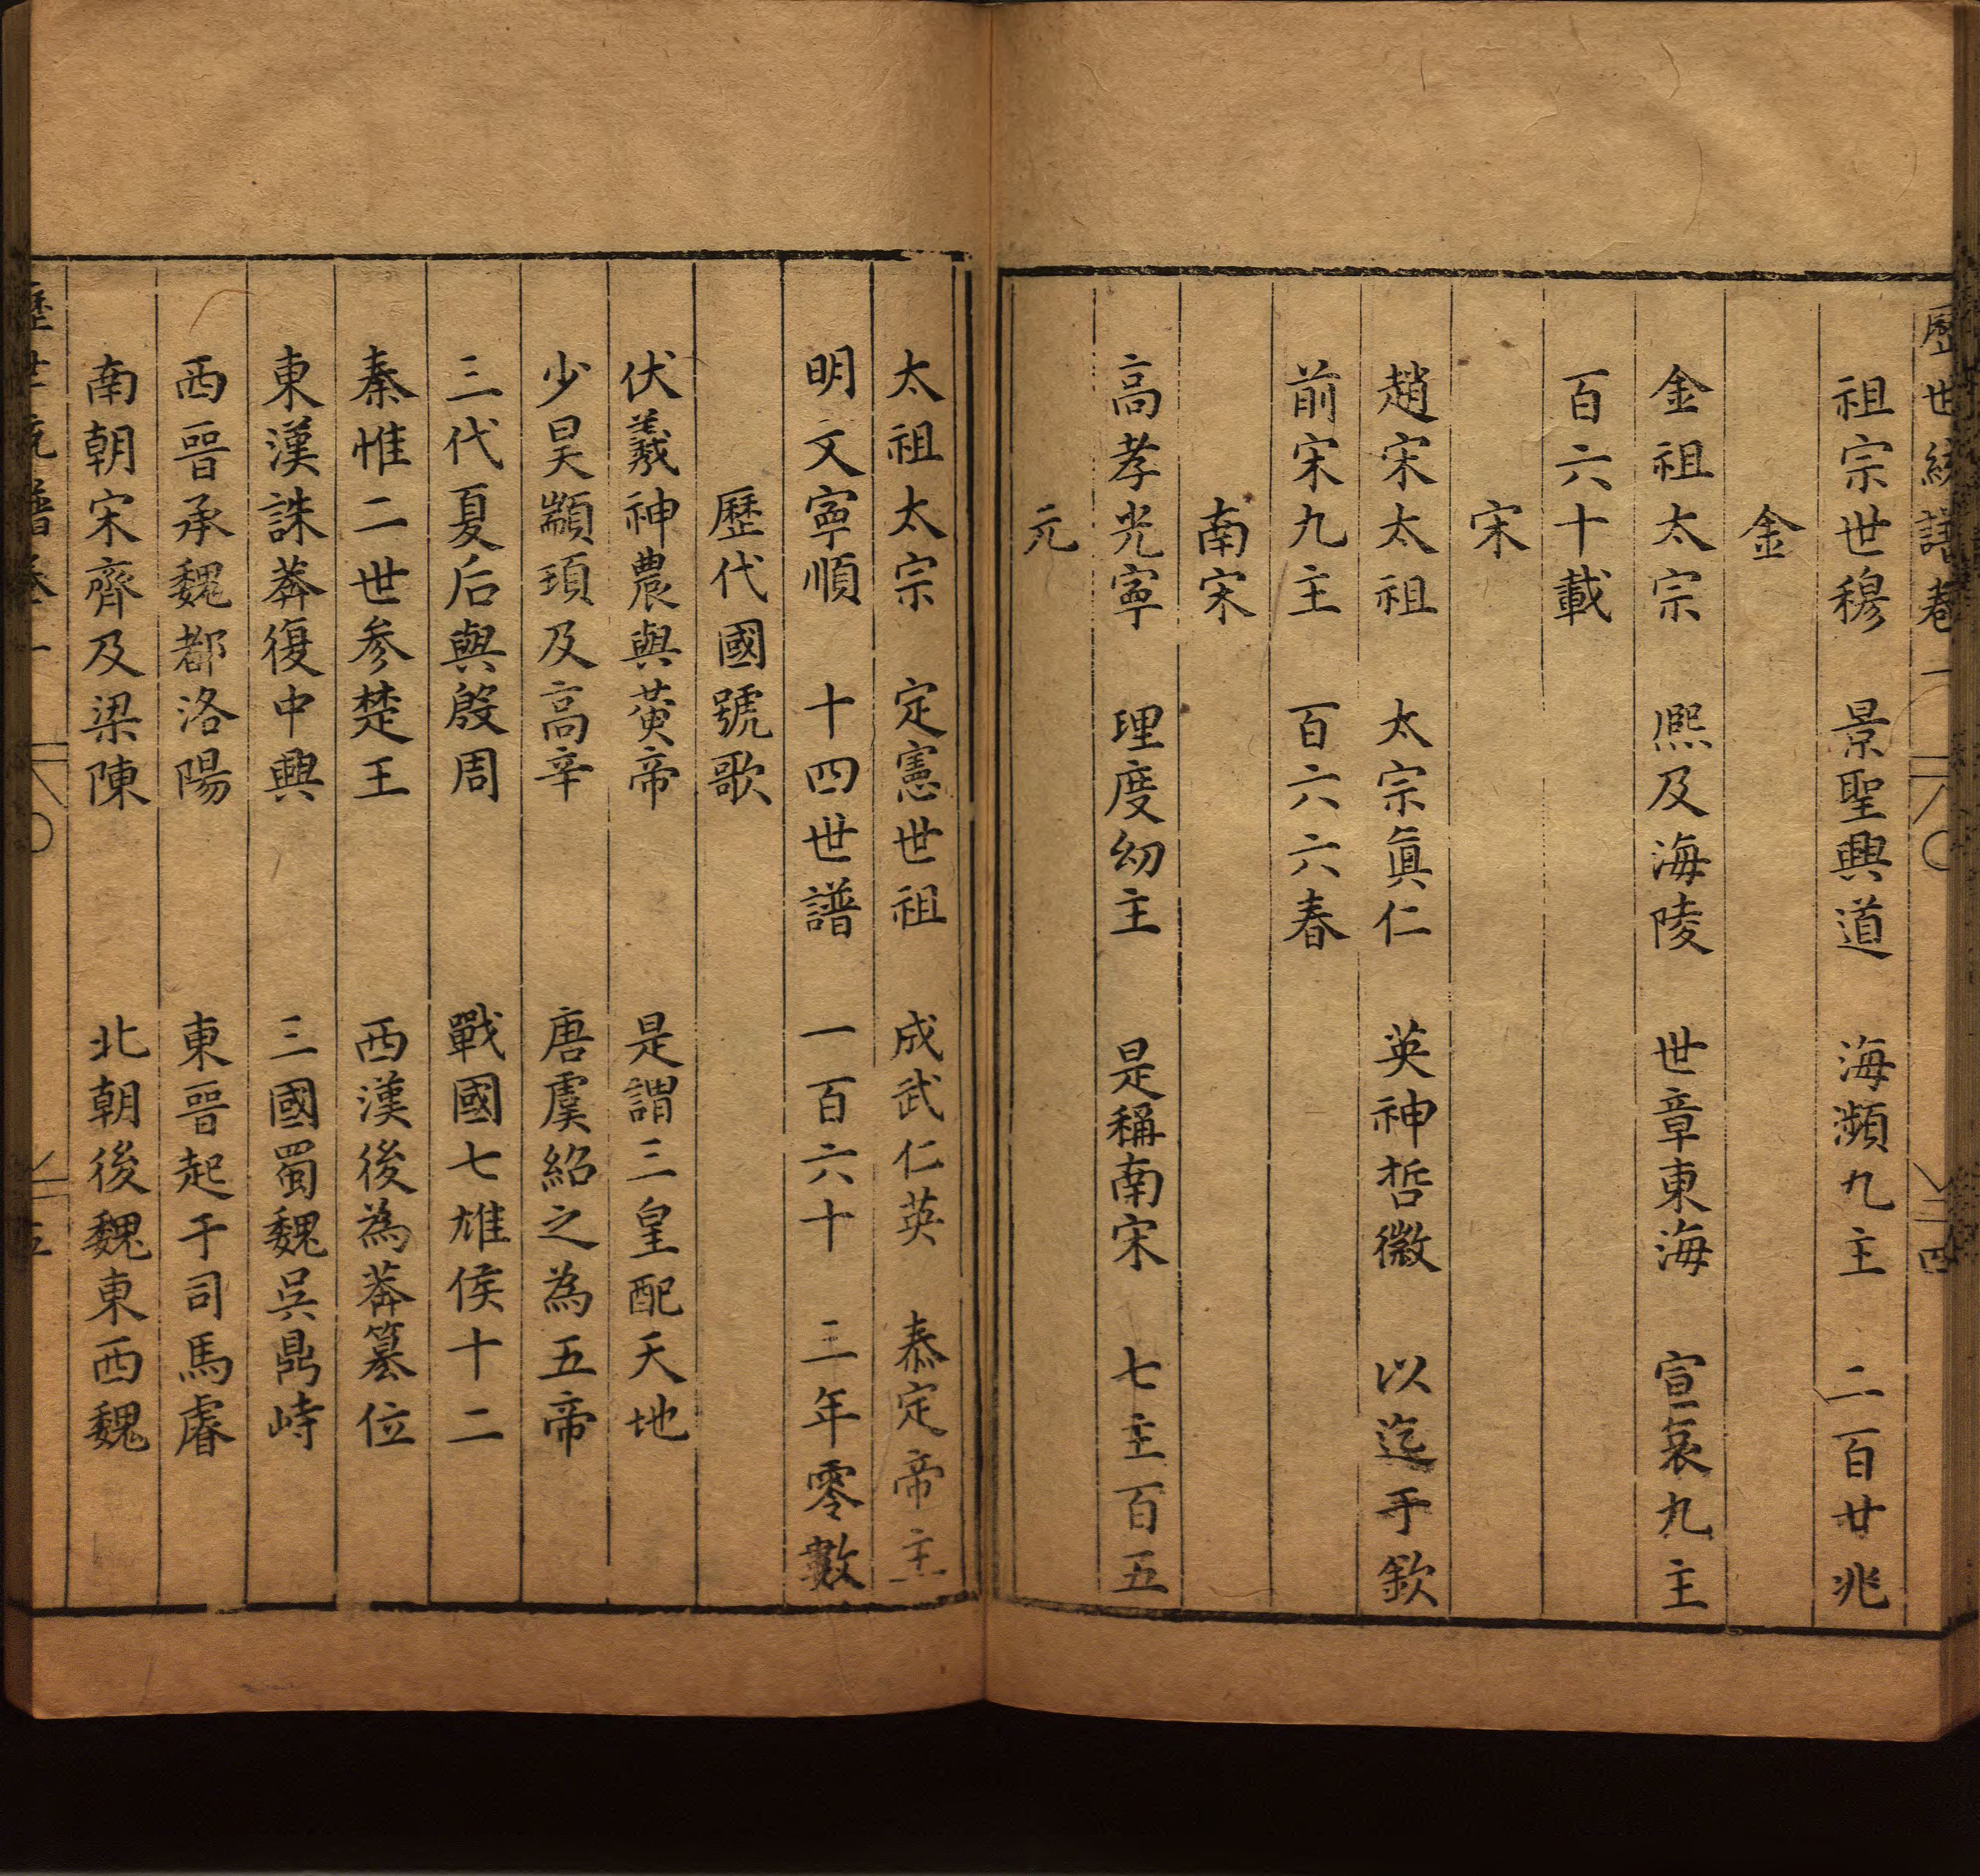 歷世統譜卷一 四
祖宗世穆 景聖興道 海濱九主 二百廿兆
金
金祖太宗 熈及海陵 世章東海 宣哀九主
百六十載
宋
趙宋太祖 太宗眞仁 英神哲徽 以迄乎欽
前宋九主 百六六春
南宋
高孝光寧 理度幼主 是稱南宋 七主百五
元
太祖太宗 定憲世祖 成武仁英 泰定帝主
明文寧順 十四世譜 一百六十 三年零數
歷代國號歌
伏羲神農與黃帝 是謂三皇配天地
少昊顓頊及高辛 唐虞紹之為五帝
三代夏后與殷周 戰國七雄侯十二
秦惟二世参楚王 西漢後為莽篡位
東漢誅莽復中興 三國蜀魏吳鼎峙
西晉承魏都洛陽 東晉起于司馬睿
南朝宋齊及梁陳 北朝後魏東西魏
歷世統譜卷一 五